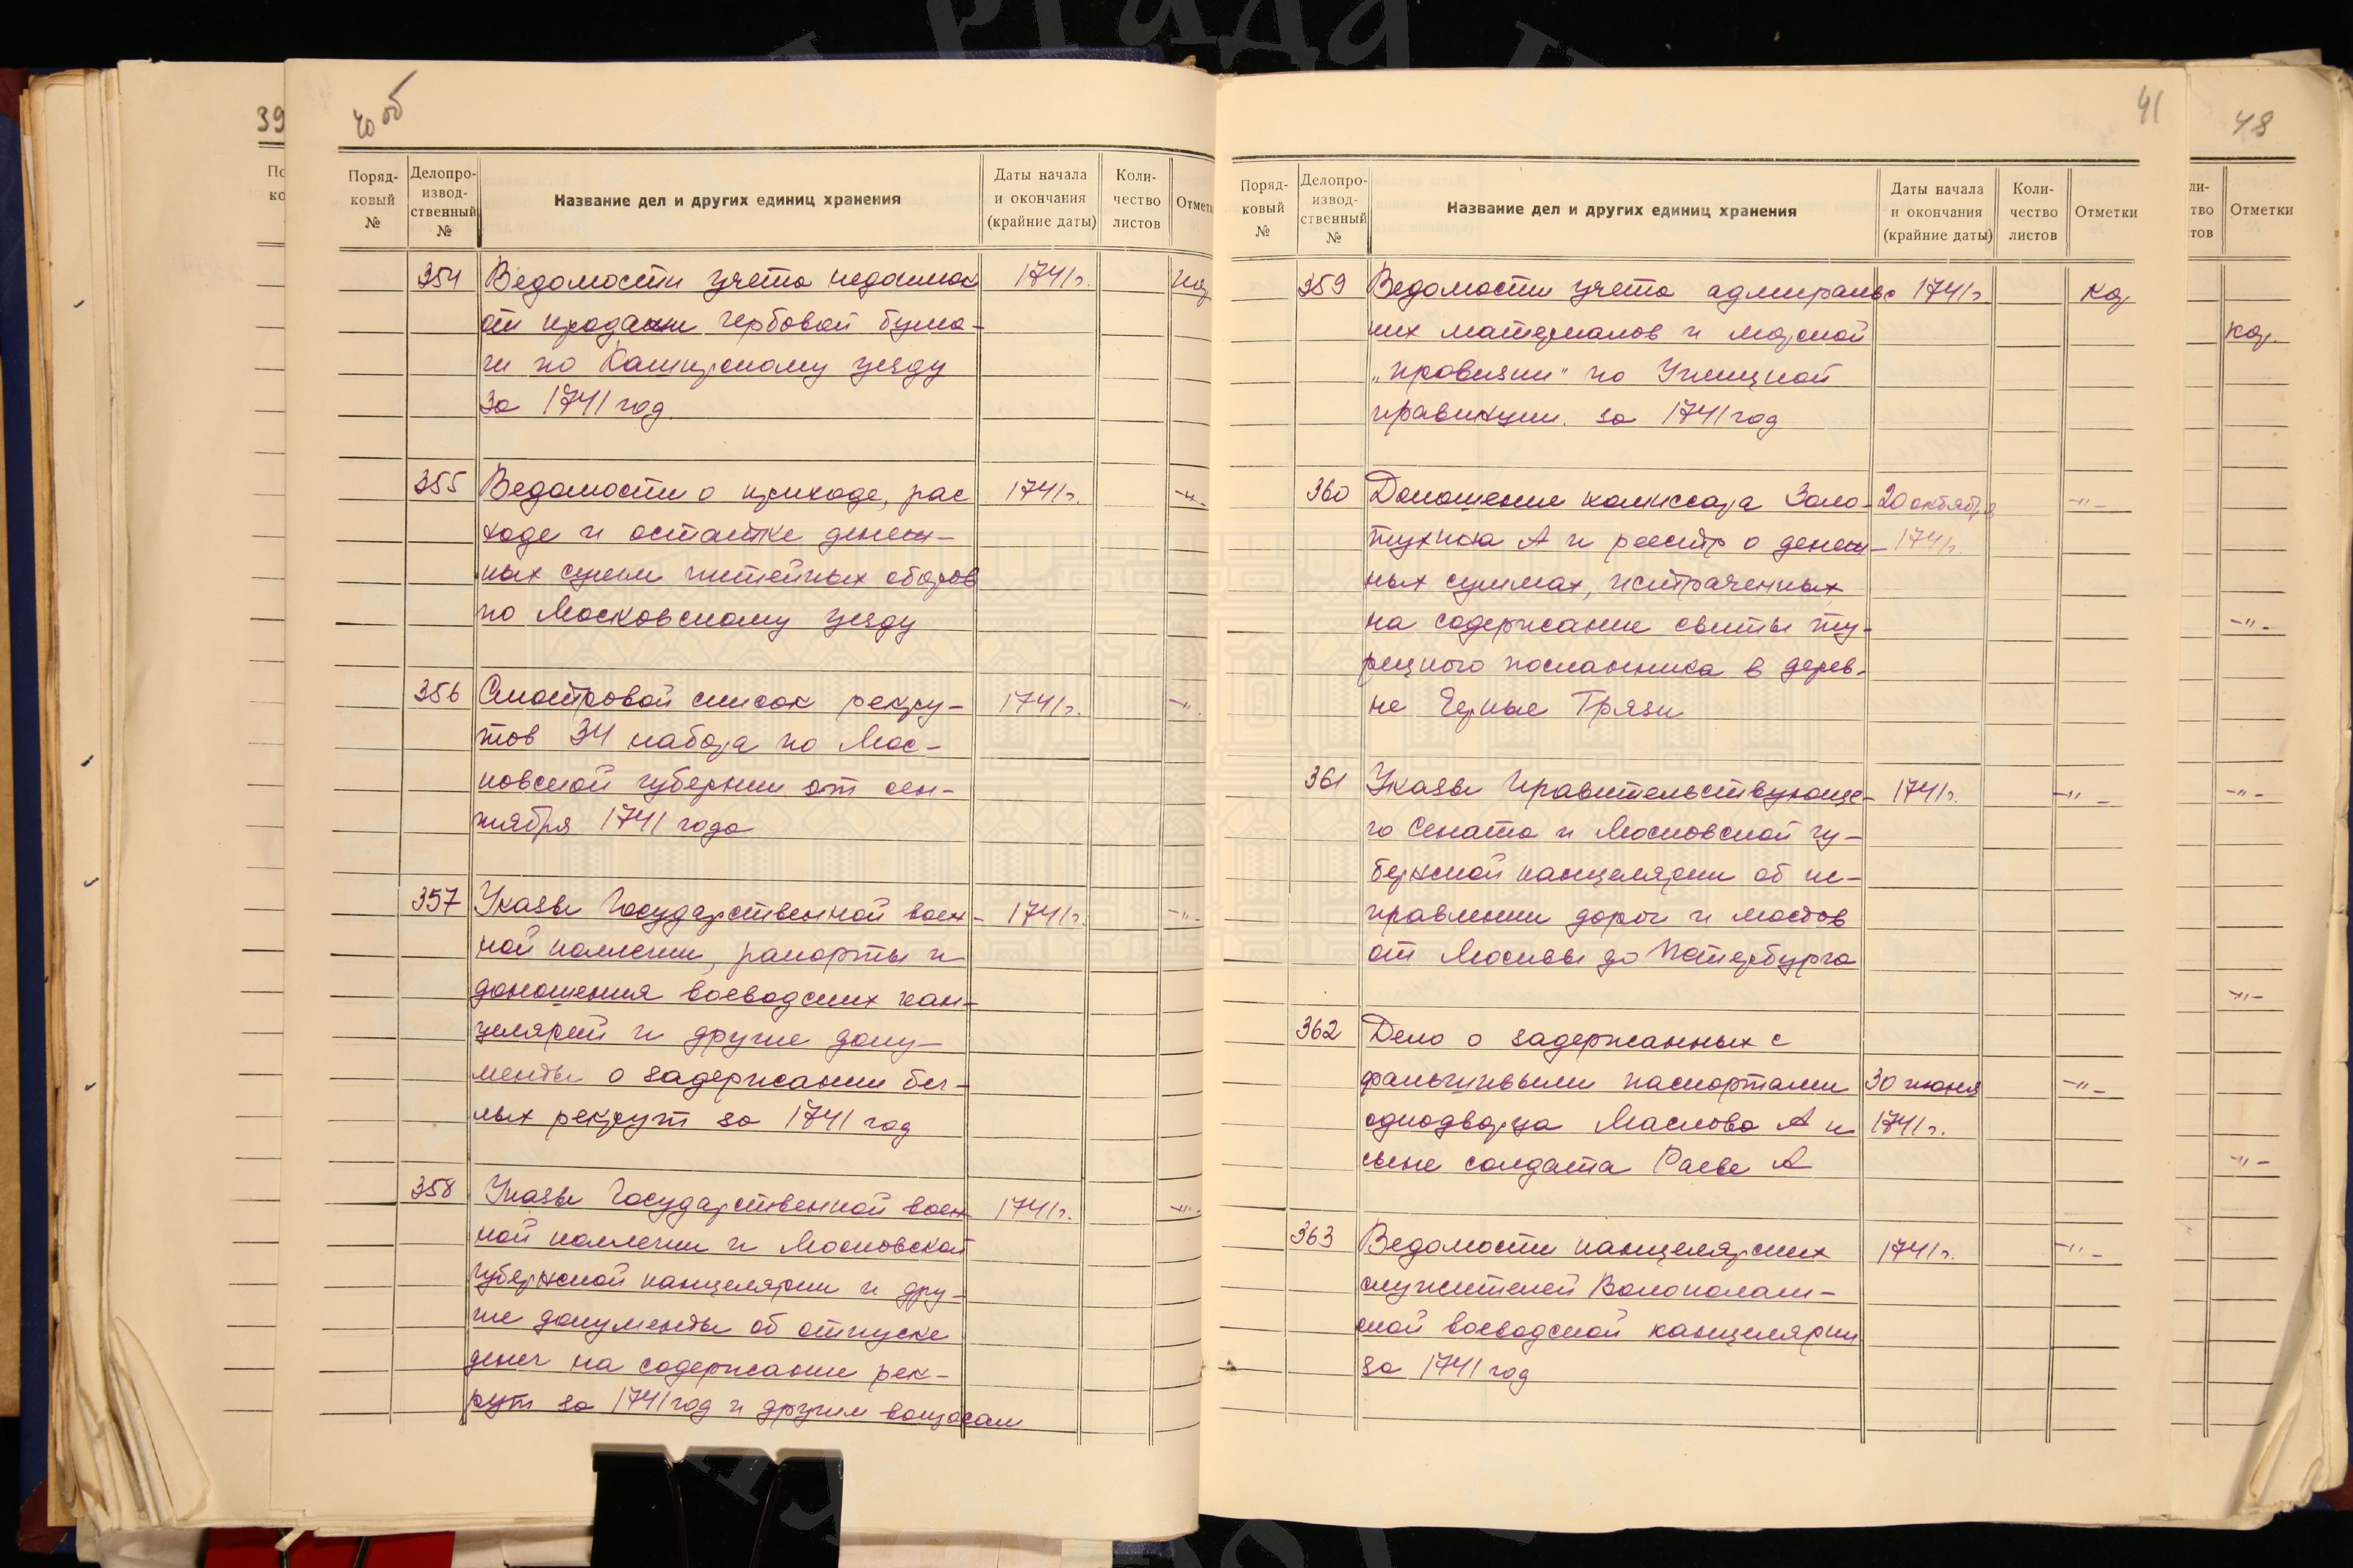 40 об
Поряд-
ковый
№
Делопро-
извод-
ственный
№
Название дел и других единиц хранения
Даты начала
и окончания
(крайние даты)
Коли-
чество
листов
Отметк
354 Ведомости учета недоимок 1741 г.
от продажи гербовой бума-
ги по Каширскому уезду
за 1741 год
355 Ведомости о приходе, рас 1741 г. -"-
ходе и остатке денеж-
ных сумм питейных сборов
по Московскому уезду
356 Смотровой список рекру- 1741 г. -"-
тов 34 набора по Мос-
ковской губернии от сен-
тября 1741 года
357 Указы Государственной воен- 1741 г. -"-
ной коллегии, рапорты и
доношения воеводских кан-
целярей и другие доку-
менты о задержании бег-
лых рекрут за 1741 год
358 Указы Государственной воен 1741 г. -"-
ной коллегии и Московской
губернской канцелярии и дру-
гие документы об отпуске
денег на содержание рек-
рут за 1741 год и другим вопросам
41
Поряд-
ковый
№
Делопро-
извод-
ственный
№
Название дел и других единиц хранения
Даты начала
и окончания
(крайние даты)
Коли-
чество
листов
Отметки
359 Ведомости учета адмиралтейс 1741 г.
ких материалов и морской
„провизии" по Углицкой
правинции за 1741 год
360 Доношение комиссара Золо- 20 октября -"-
тухина А и реестр о денеж- 1741 г.
ных суммах, истраченных
на содержание свиты ту-
рецкого посланника в дерев-
не Черные Грязи
361 Указы Правительствующе- 1741 г. -"-
го Сената и Московской гу-
бернской канцелярии об ис-
правлении дорог и мостов
от Москвы до Петербурга
362 Дело о задержанных с
фальшивыми паспортами 30 июня -"-
однодворца Маслова А и 1741 г.
сыне солдата Раеве А
363 Ведомости канцелярских 1741 г. -"-
служителей Волоколам-
ской воеводской канцелярии
за 1741 год
39
48
Отметки